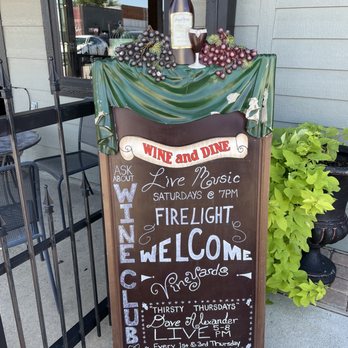 WINE and DINE
ASK ABOUT
WINE CLUB
Live Music
SATURDAYS @ 7PM
FIRELIGHT
WELCOME
Vineyards
THIRSTY THURSDAYS
Dave Alexander
LIVE 5-8 PM
Every 1st & 3rd Thursday